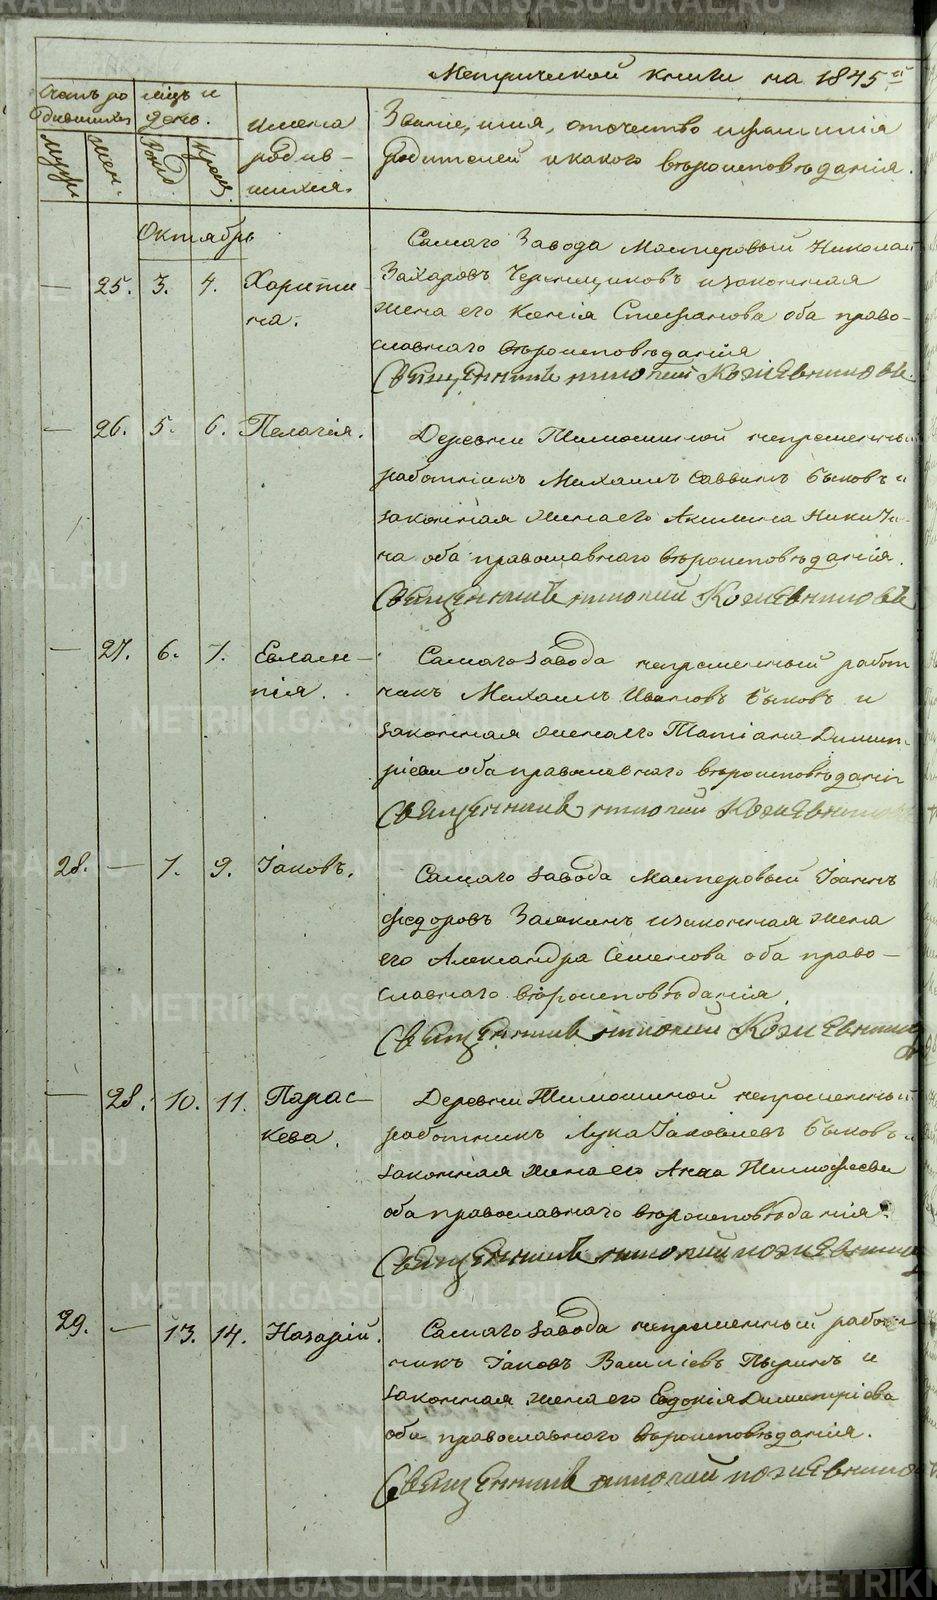 Метрической книги на 1845й
Счетъ ро
дившихся
мцъ и
день.
Муж.
Жен.
Рожд.
Крещ.
имена
родив-
шихся.
Звание, имя, отечество и фамилія
родителей и какого вѣроисповѣданія.
Октябрь
— 25. 3. 4. Харити-
на.
Самаго Завода Мастеровый Николай
Захаровъ и законная
жена его Ксенія Стефанова оба право-
славнаго вѣроисповѣданія
Священникъ Николай Кожевниковъ.
— 26. 5. 6. Пелагія.
Деревни Тимошиной непременный
работникъ Михаилъ Саввинъ Быковъ и
законная жена его Акилина Никити-
на оба православнаго вѣроисповѣданія.
Священникъ Николай Кожевниковъ
— 27. 6. 7. Евлам-
пія.
Самаго Завода непременный работ
никъ Михаилъ Ивановъ Быковъ и
законная жена его Татіана Димит-
ріева оба православнаго вѣроисповѣданія
Священникъ Николай Кожевниковъ
28. — 7. 9. Іаковъ.
Самаго Завода Мастеровый Іоаннъ
Федоровъ Заякинъ и законная жена
его Александра Семенова оба право-
славнаго вѣроисповѣданія.
Священникъ Николай Кожевников
— 28. 10. 11. Парас-
кева.
Деревни Тимошиной непременный
работникъ Лука Іаковлевъ Быковъ и
законная жена его Анна Тимофеева
оба православнаго вѣроисповѣданія.
Священникъ Николай Кожевников
29. — 13. 14. Назарій.
Самаго Завода непременный работ
никъ Іаковъ Василіевъ Пыринъ и
законная жена его Евдокія Димитріева
оба православнаго вѣроисповѣданія.
Священникъ Николай Кожевников
METRIKI.GASO-URAL.RU